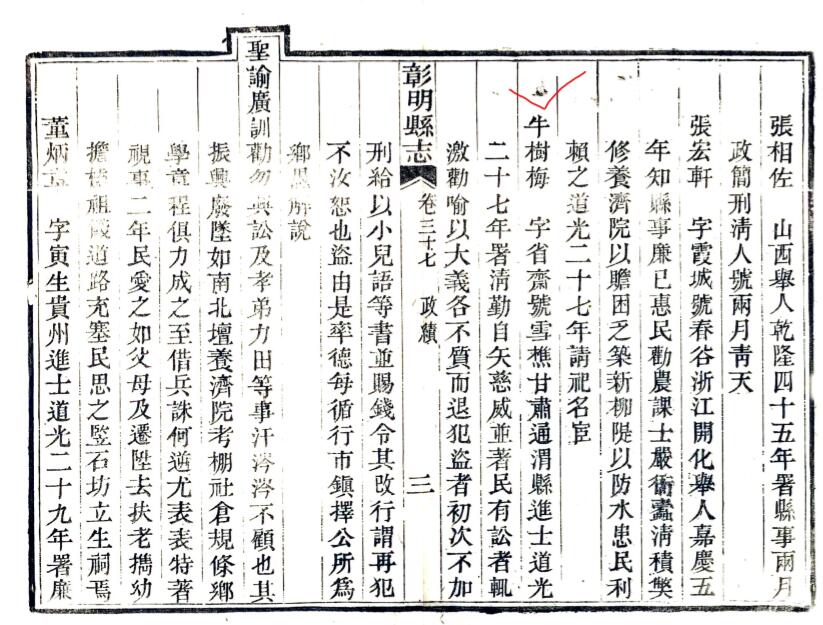 張相佐　山西舉人乾隆四十五年署縣事兩月
政簡刑淸人號兩月靑天
張宏軒　字霞城號春谷浙江開化舉人嘉慶五
年知縣事廉已惠民勸農課士嚴衙蠹淸積獘
修養濟院以贍困乏築新柳隄以防水患民利
賴之道光二十七年請祀名宦
牛樹梅　字省齋號雪樵甘肅通渭縣進士道光
二十七年署淸勤自矢慈威並著民有訟者輒
激勸喻以大義各不質而退犯盜者初次不加
彰明縣志　卷三十七　政績　三
刑給以小兒語等書並賜錢令其改行謂再犯
不汝恕也盜由是率德每循行市鎭擇公所爲
鄉愚解說
聖諭廣訓勸勿興訟及孝弟力田等事汗涔涔不顧也其
振興廢墜如南北壇養濟院考棚社倉規條鄉
學章程俱力成之至借兵誅何遠尤表表特著
視事二年民愛之如父母及遷陞去扶老攜幼
擔 祖餞道路充塞民思之竪石坊立生祠焉
董炳 　字寅生貴州進士道光二十九年署廉